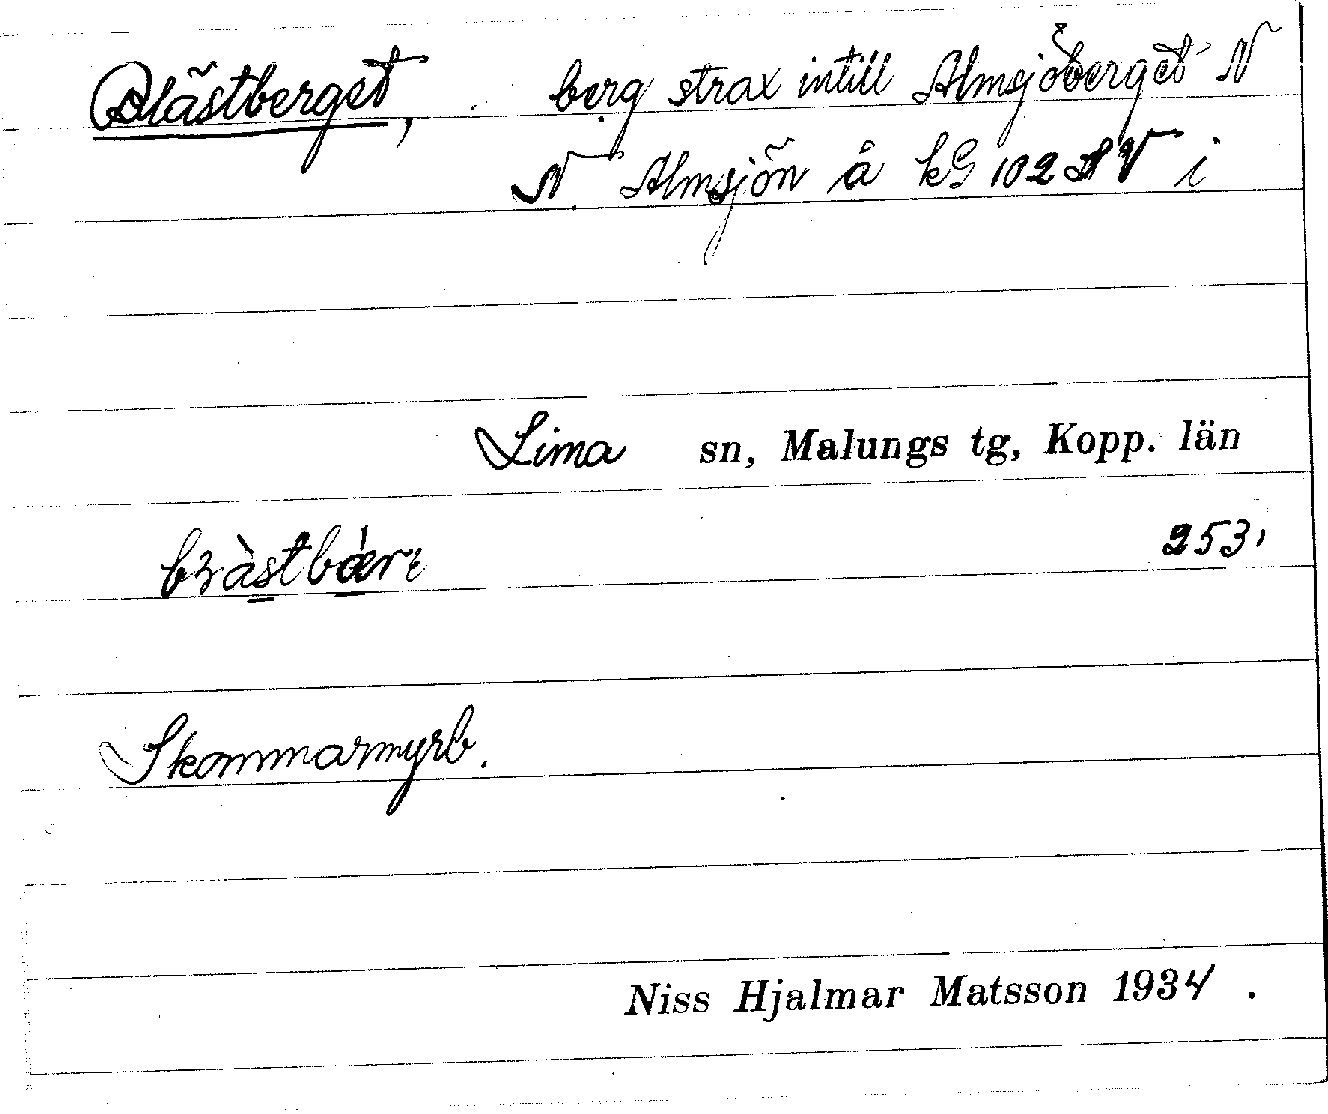 Blästberget, berg strax intill Almsjöberget N
N. Almsjön å kG 102 SV i
Lima sn, Malungs tg, Kopp. län
253.
Skommarmyrb.
Niss Hjalmar Matsson 1934.